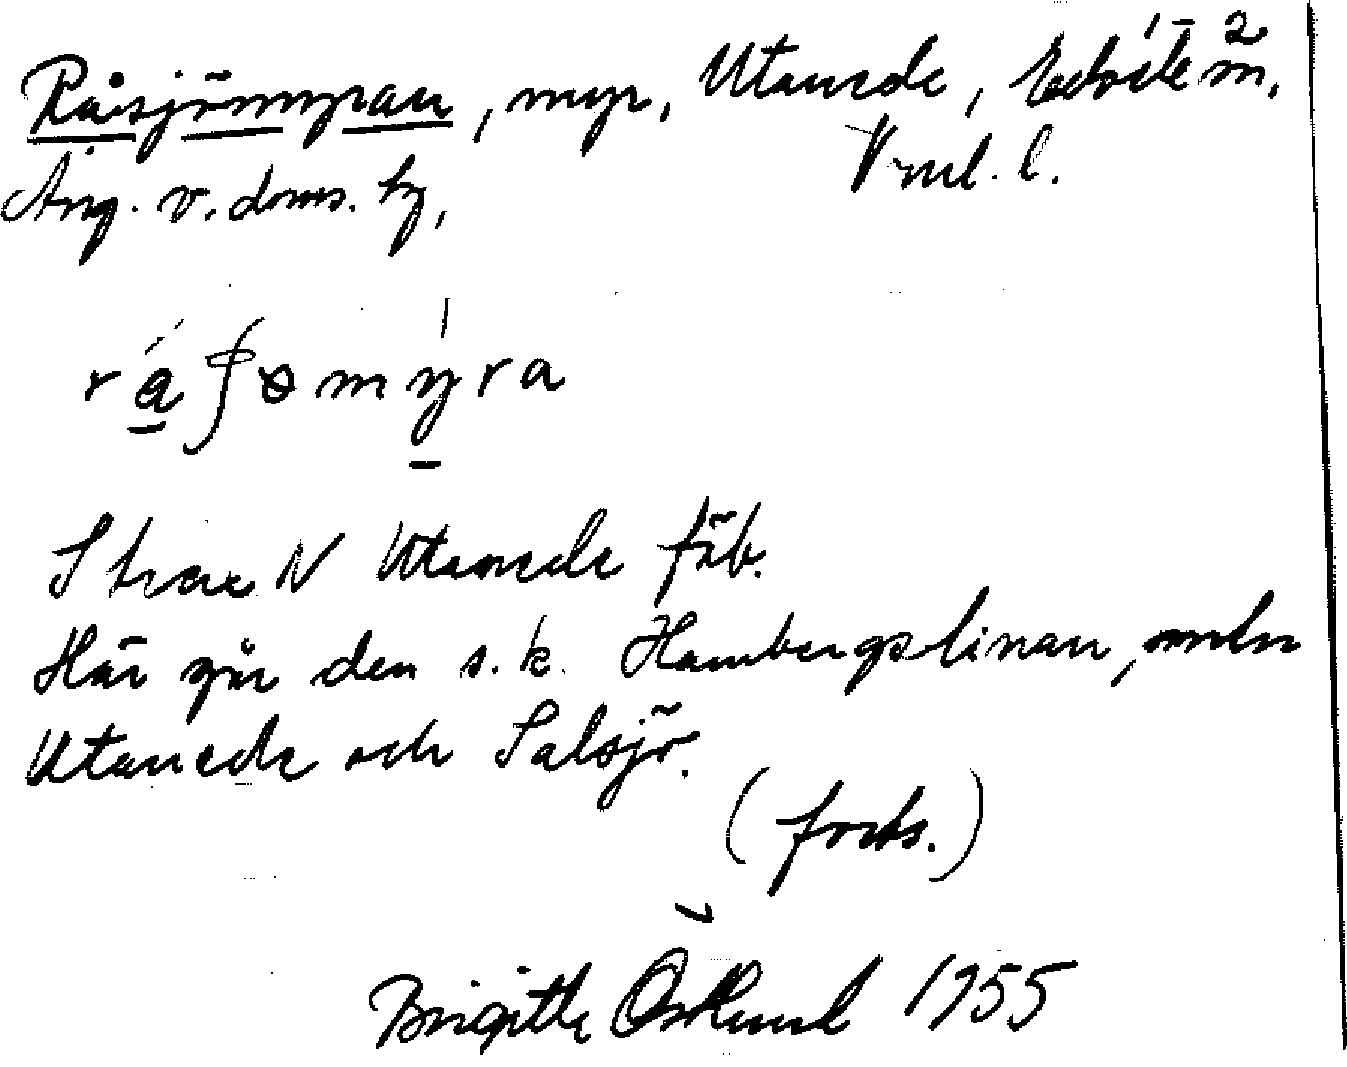 Råsjömyran, myr, Utanede,
Ång. v. doms. tg, Vml. l.
Strax N Utanede fäb.
Här går den s.k. Hambergslinan, mellan
Utanede och Salsjö.
(forts.)
Brigitte Östlund 1955